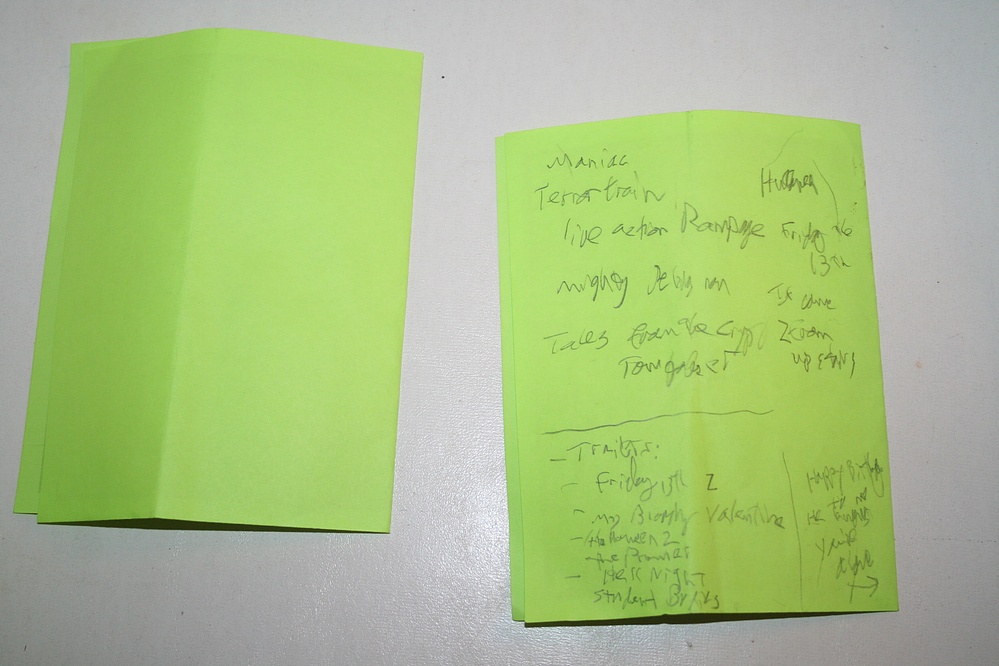 Maniac
Terror train
live action Rampage
mighty
Tales from the Crypt
Friday the
13th
It came
from
upstairs
- Trailers:
- Friday 13th 2
- My Bloody Valentine
- Halloween 2
the Prowler
- Hell Night
Student Bodies
Happy Birthday
to me
He knows
you're
alone